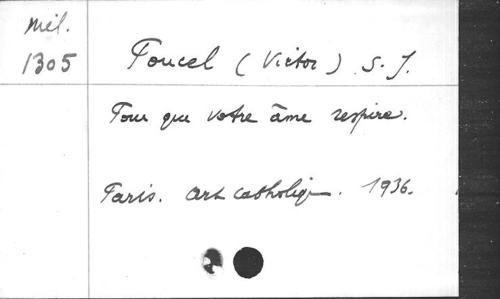 Mél.
1305
Poucel (Victor) S. J.
Pour que votre âme respire.
Paris. Art catholique. 1936.